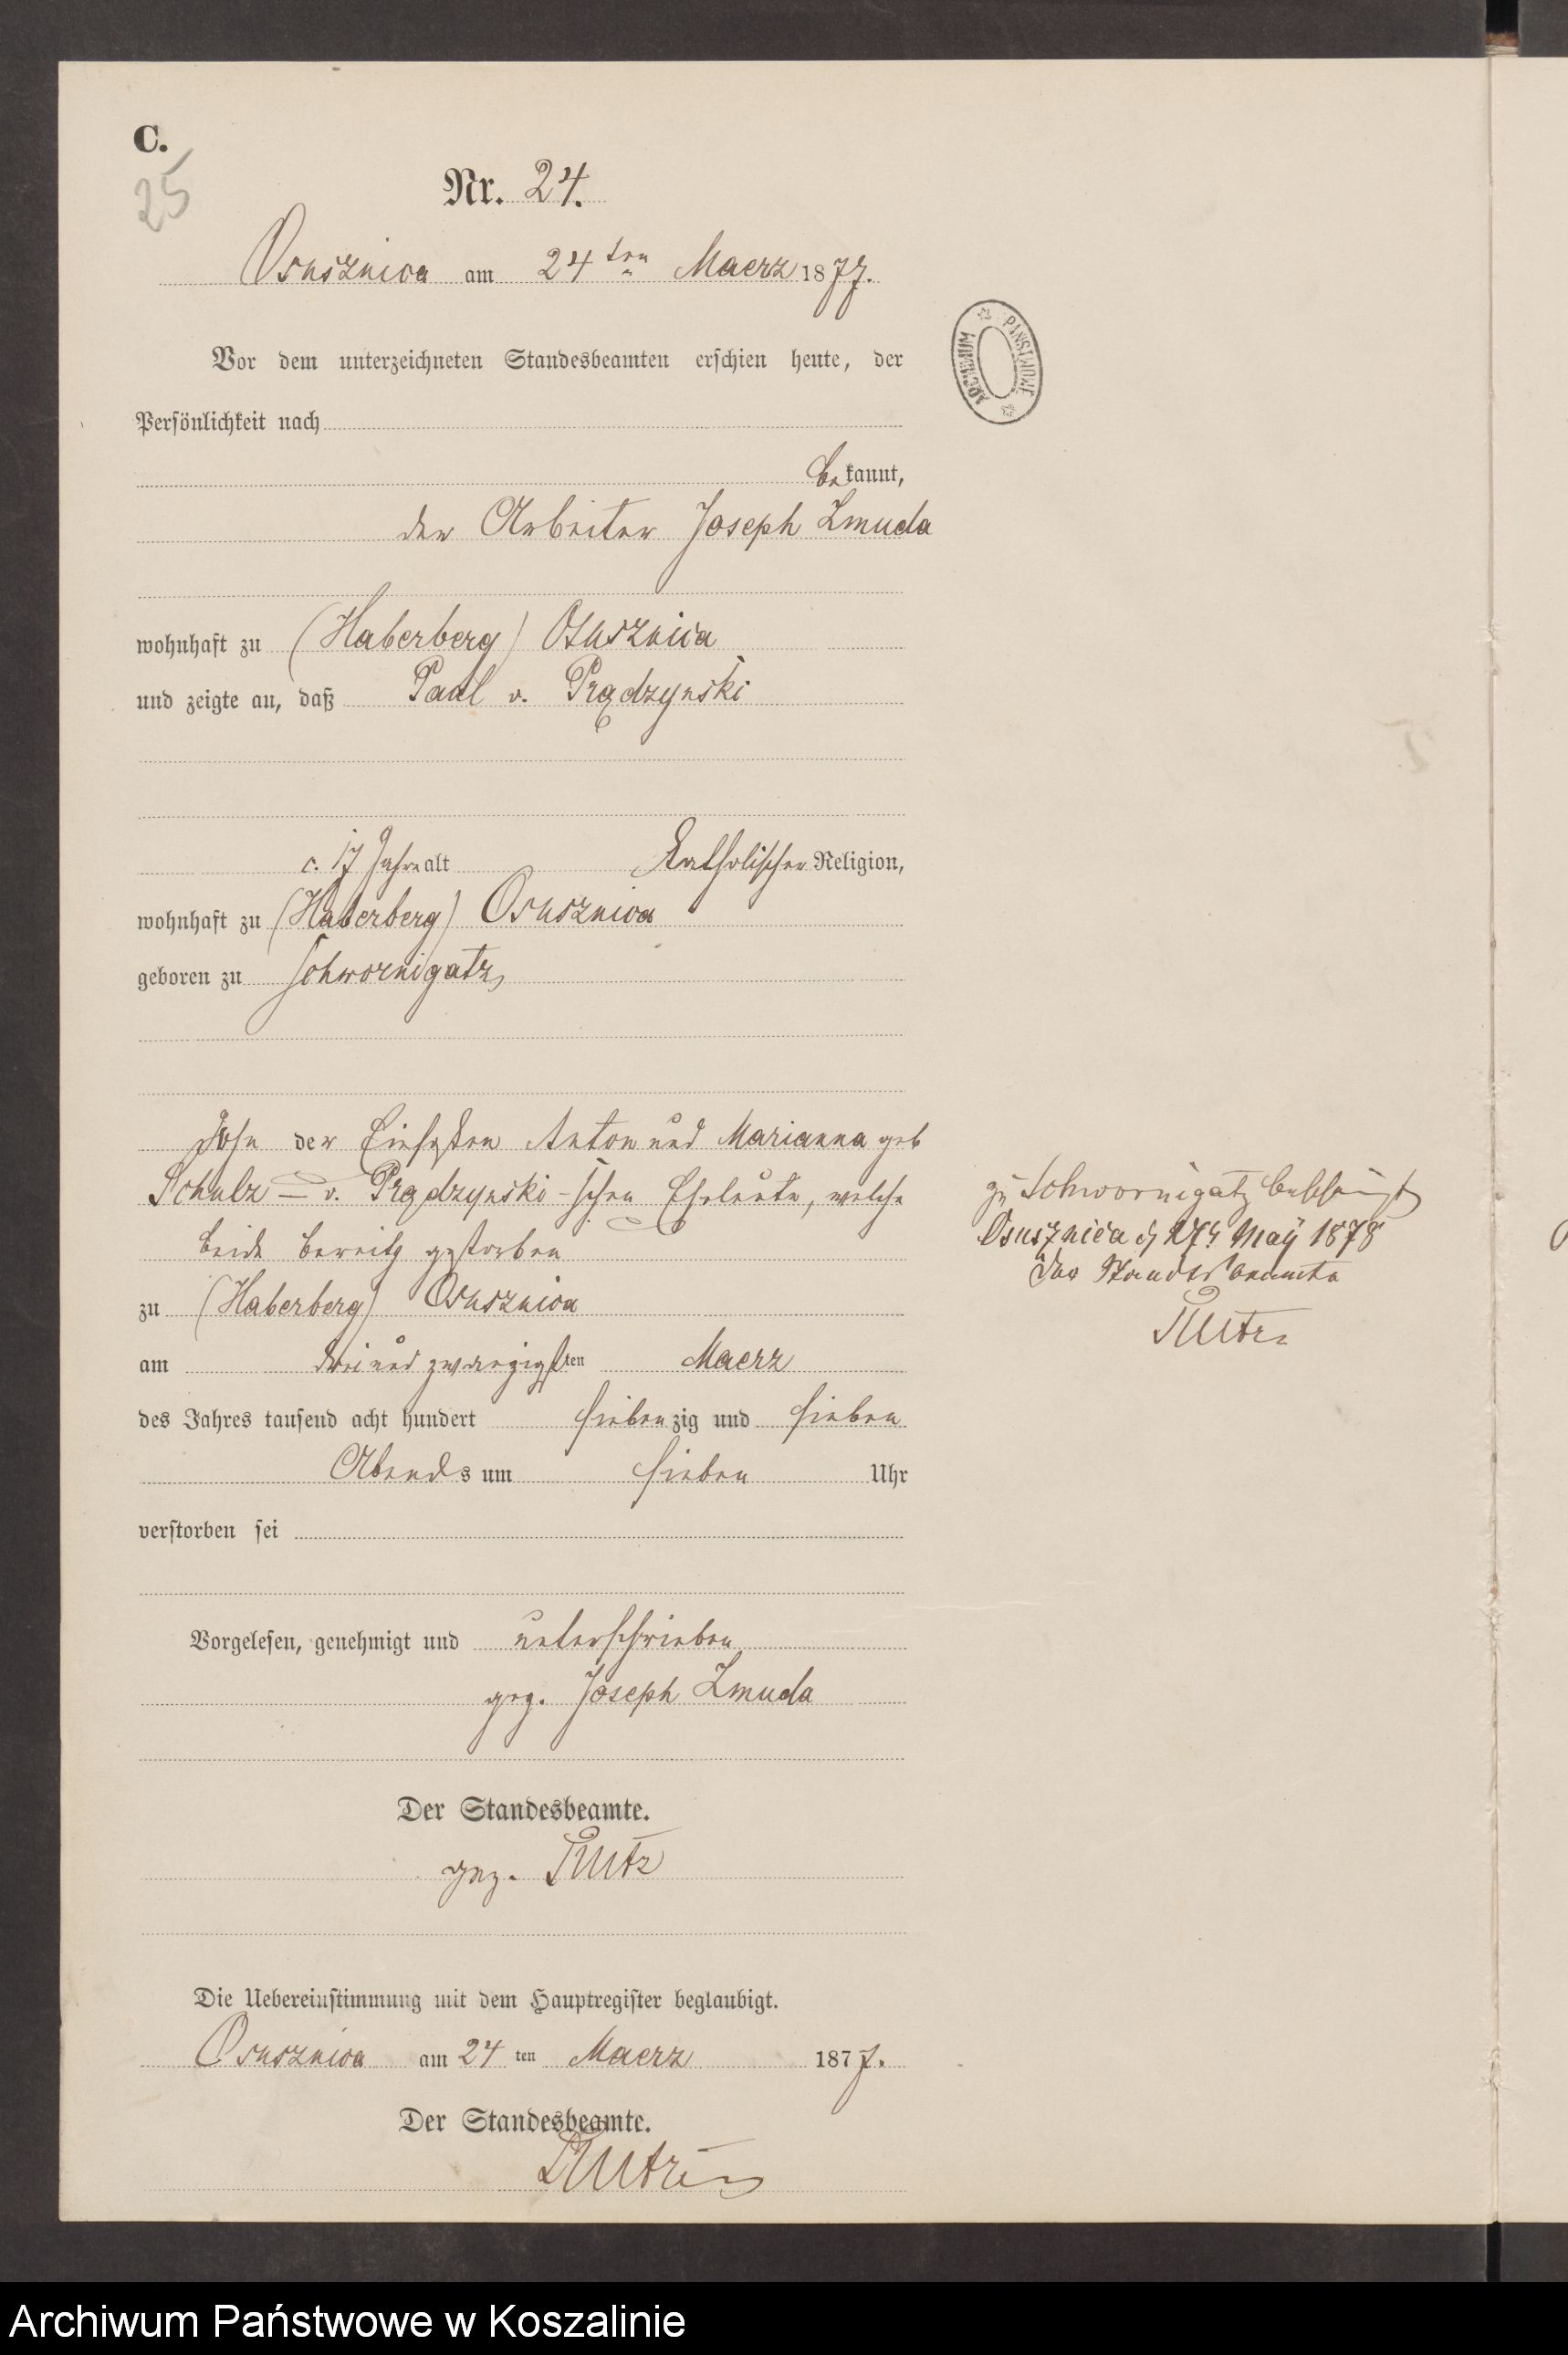 C.
25
Nr. 24.
Osusznica am 24ten Maerz 1877.
Vor dem unterzeichneten Standesbeamten erschien heute, der
Persönlichkeit nach
bekannt,
der Arbeiter Joseph Zmuda
wohnhaft zu (Haberberg) Osusznica
und zeigte an, daß Paul v. Prądzynski
c. 17 Jahre alt Katholischer Religion,
wohnhaft zu (Haberberg) Osusznica
geboren zu Schwornigatz
Sohn der Anton und Marianna geb
Schulz - v. Prądzynski-schen Eheleute, welche
beide bereits gestorben
zu (Haberberg) Osusznica
am drei und zwanzigsten Maerz
des Jahres tausend acht hundert siebenzig und sieben
Abends um sieben Uhr
verstorben sei
Vorgelesen, genehmigt und unterschrieben
gez. Joseph Zmuda
Der Standesbeamte.
gez.
Die Uebereinstimmung mit dem Hauptregister beglaubigt.
Osusznica am 24 ten Maerz 1877.
Der Standesbeamte.
ARCHIWUM PAŃSTWOWE
zu Schwornigatz
Osusznica d 27t May 1878
Der Standesbeamte
Archiwum Państwowe w Koszalinie